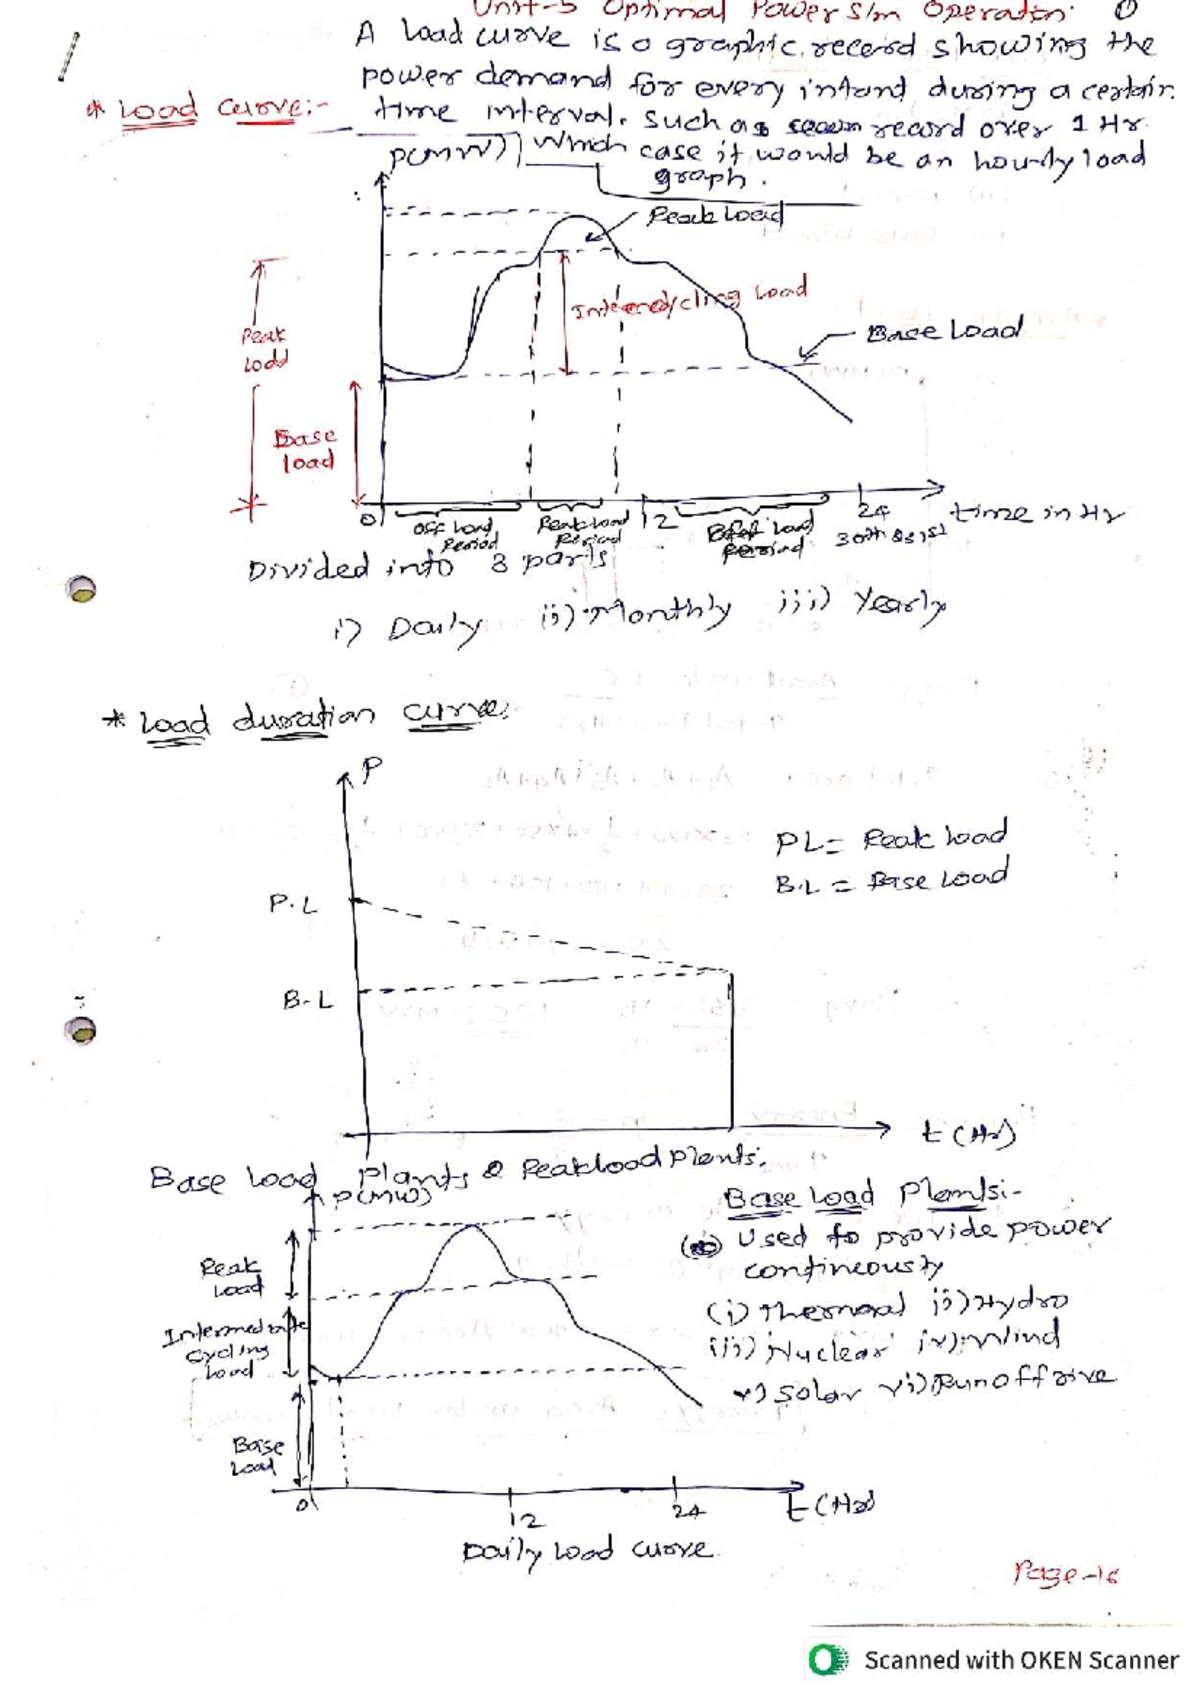 Unit-5 Optimal Power S/m Operaton. ①
A load curve is a graphic record showing the
power demand for every intand during a certain
* Load curve:- time interval. Such as record over 1 Hr
P(MW) which case it would be an hourly load
graph.
Peak Load
Peak
Lodd
Load
Base Load
Base
load
0
off Load
Period
Peak Load
Period
12
Load
Period
24
30th
time in Hr
Divided into 3 parts
i) Daily ii) Monthly iii) Yearly
* Load duration curve:
P
PL = Peak load
P.L
B.L = Base Load
B-L
t (Hr)
Base Load Plants & Peakload plants.
P(MW)
Base Load Plants:-
Used to provide power
contineousty
Peak
Load
(i) Thermal ii) Hydro
Intermediate
cycling
Load
iii) Nuclear iv) Wind
v) Solar vi) Runoffrive
Base
Load
0
12
24
t (Hr)
Daily Load curve.
Page-16
Scanned with OKEN Scanner